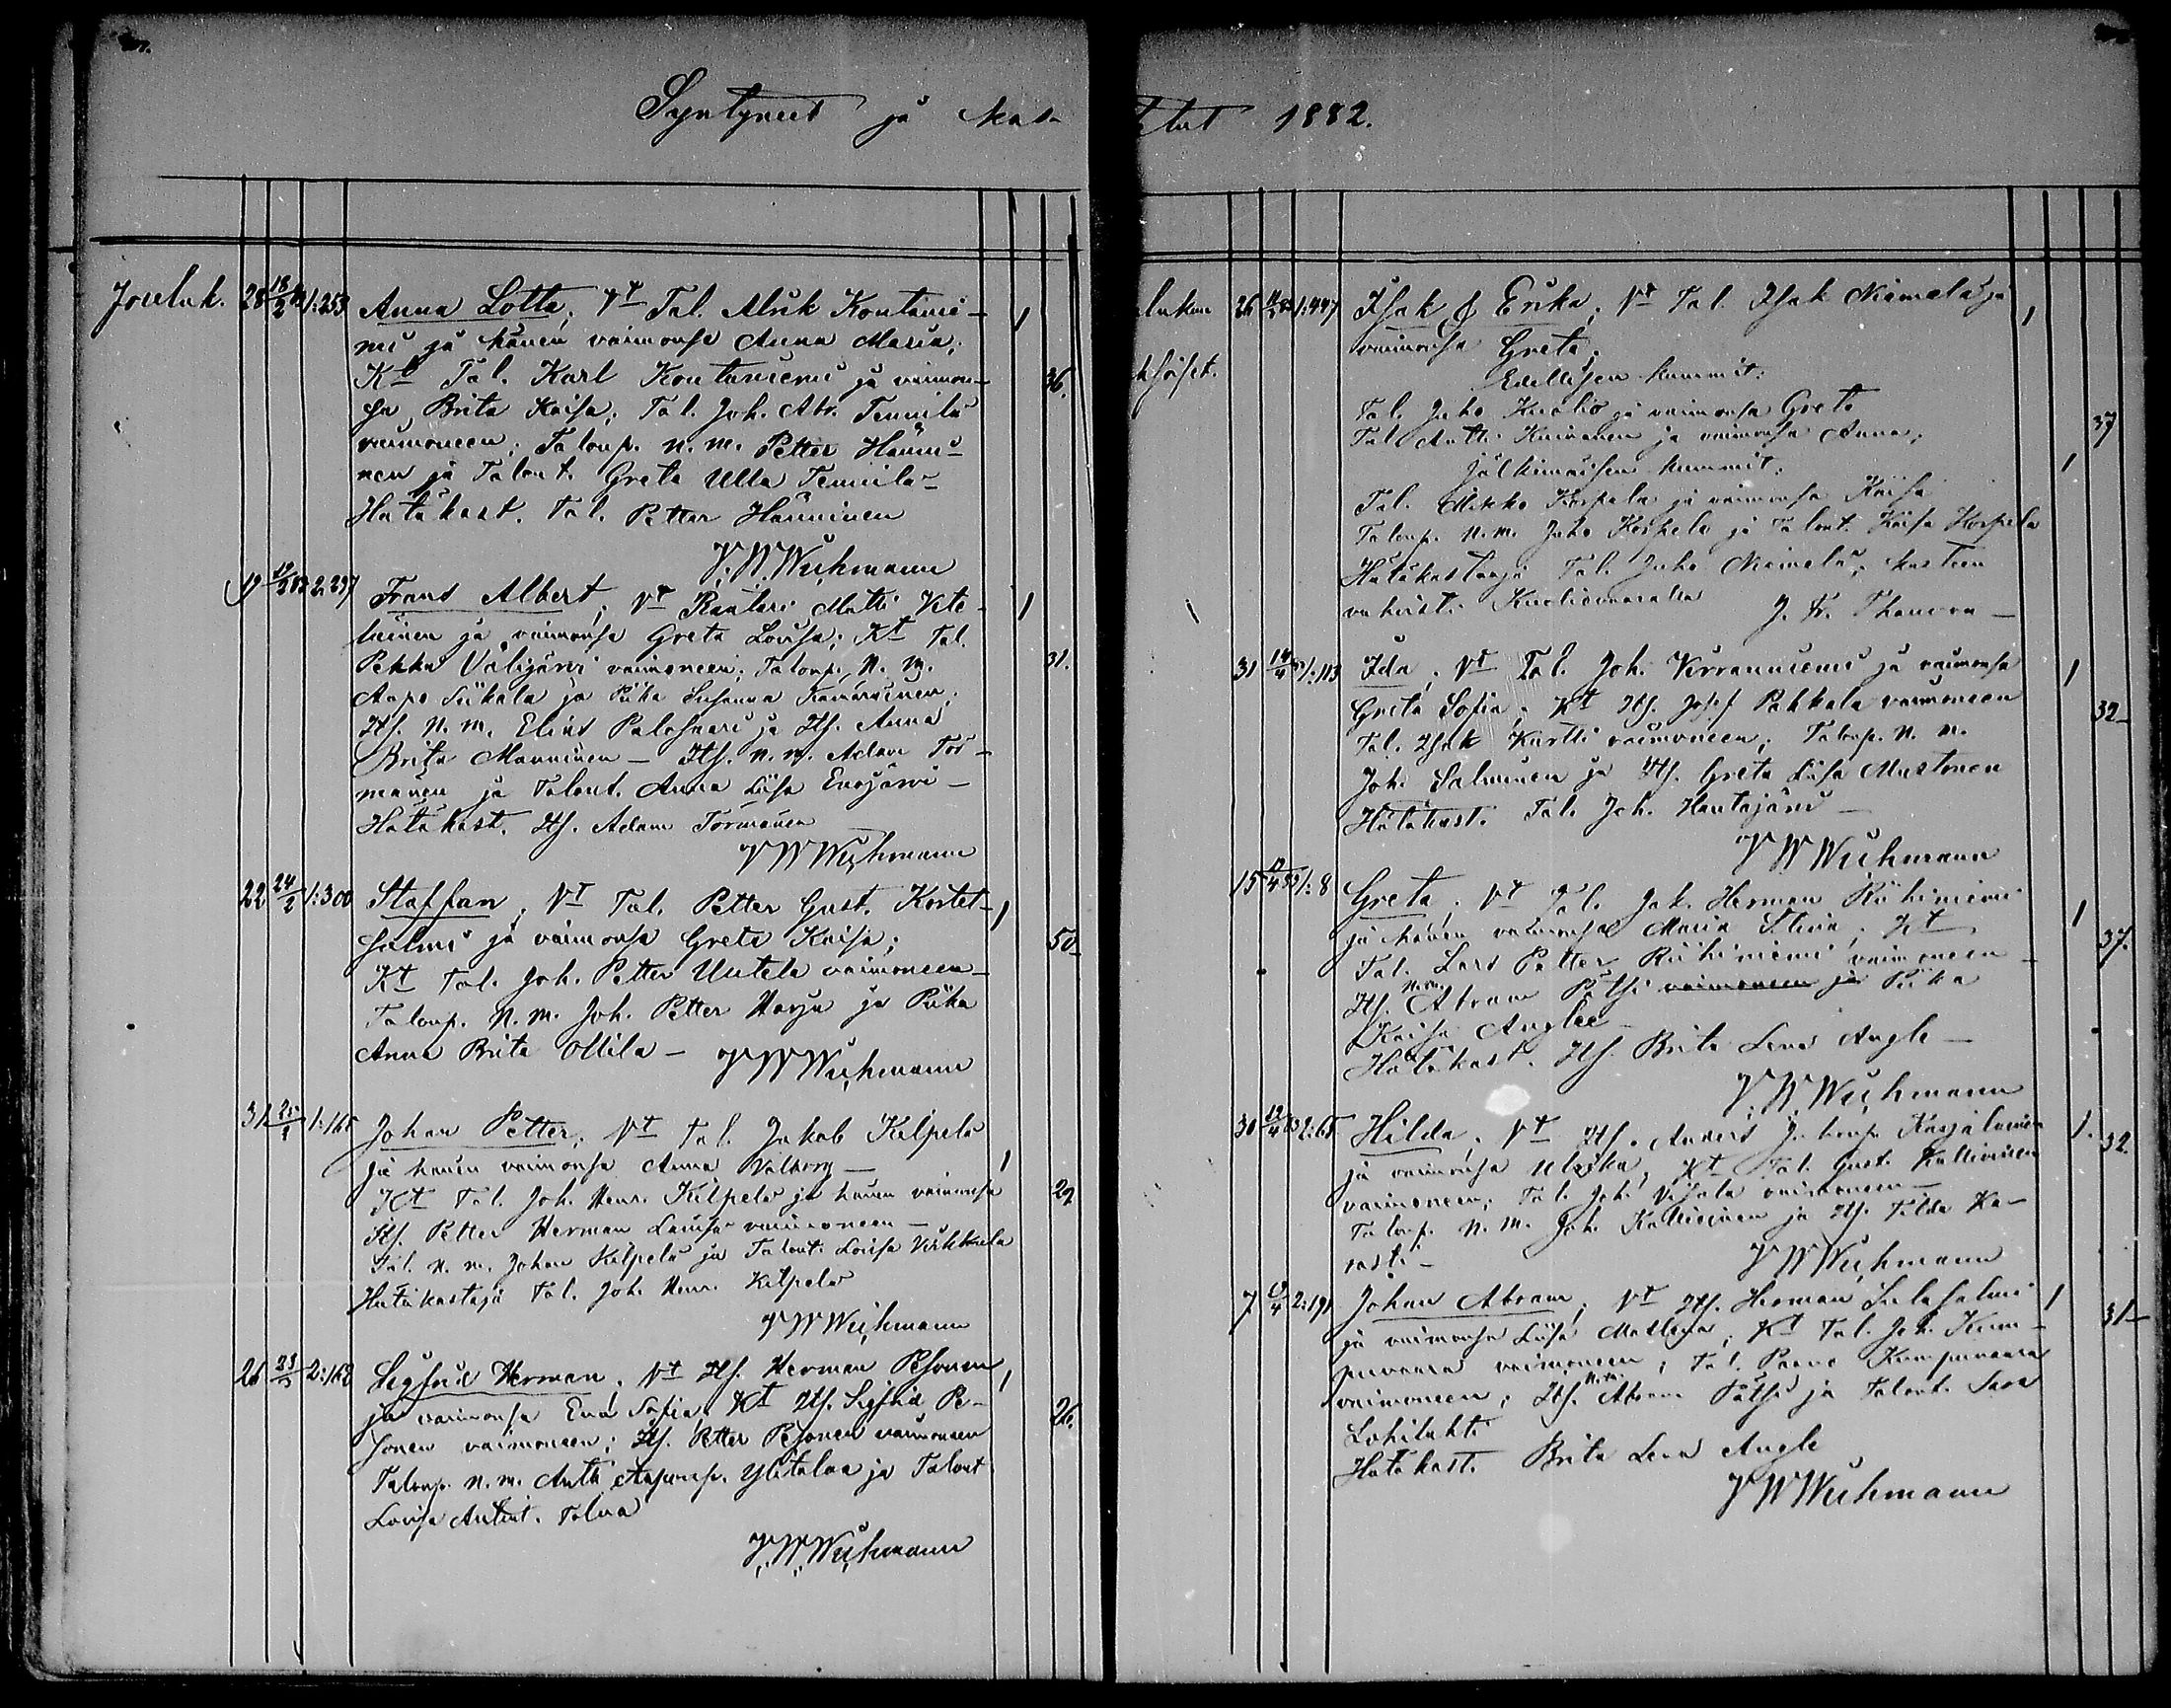 Syntyneet ja Kas-
tetut 1882.
Jouluk. 28 18/2 82 1:253 Anna Lotta, Vt Tal. Alrik Kontanie-
mi ja hänen vaimonsa Anna Maria;
Kt Tal. Karl Kontaniemi ja vaimon- 36.
sa Brita Kaisa; Tal. Joh. Abr. Tennilä
vaimoneen; Talonp. N. m. Petter Hänni-
nen ja Talont. Greta Ulla Tennilä-
Hätäkast. Tal. Petter Hänninen
J. W. Wichmann
19 19/2 82 2:297 Frans Albert; Vt Räätäri Matti Vete-
läinen ja vaimonsa Greta Lovisa; Kt Tal.
Pekka Välijärvi vaimoneen; Talonp. N. m. 31.
Aapo Siikala ja Piika Susanna
Its. N. m. Elias Palosaari ja Its. Anna
Brita Manninen - Its. N. m. Adam Tör-
mänen ja Talont. Anna Liisa Enojärvi -
Hätäkast. Its. Adam Törmänen
J W Wichmann
22 24/2 1:300 Staffan, Vt Tal. Petter Gust. Kortet-
salmi ja vaimonsa Greta Kaisa; 50
Kt Tal. Joh. Petter Uutela vaimoneen-
Talonp. N. m. Joh. Petter Harju ja Piika
Anna Brita Ollila - J W Wichmann
31 1:165 Johan Petter, Vt Tal. Jakob Kilpelä
ja hänen vaimonsa Anna Valborg -
Kt Tal. Joh. Henr. Kilpelä ja hänen vaimonsa 29
Its. Petter Herman vaimoneen -
Tal. N. m. Johan Kilpelä ja Talont. Lovisa Virkkula
Hätäkastaja Tal. Joh. Henr. Kilpelä
J W Wichmann
26 2:168 Sigfrid Herman, Vt Its. Herman Pesonen
ja vaimonsa Eva Sofia. Kt Its. Sigfrid Pe- 26.
sonen vaimoneen; Its. Petter Pesonen vaimoneen
Talonp. N. m. Antti Ylitalva ja Talont
Lovisa Talva
J. W. Wichmann
luken 26 1:447 Isak & Erika; Vt Tal. Isak Niemelä ja
vaimonsa Greta;
Edellisen kummit:
Tal. Juho Kuolio ja vaimonsa Greta
Tal. Antti ja vaimonsa Anna; 37
jälkimäisen kummit:
Tal. Mikko Korpela ja vaimonsa Kaisa
Talonp. N. m. Juho Korpela ja Talont. Kaisa Korpela
Hätäkastaja Tal. Juho Niemelä; kasteen
vahvisti J. Fr. Thauvon
31 14/4 1:113 Ida, Vt Tal. Joh. Virranniemi ja vaimonsa
Greta Sofia; Kt Its. Josef Pakkala vaimoneen 32
Tal. Isak Kurtti vaimoneen; Talonp. N. m.
Joh. Salminen ja Its. Greta Liisa Mustonen
Hätäkast. Tal. Joh. Hautajärvi -
J W Wichmann
15 1:8 Greta, Vt Tal. Jak. Herman Riihiniemi
ja hänen vaimonsa Maria Stina, Kt
Tal. Lars Petter Riihiniemi vaimoneen - 37.
Its. N. m. Abram Pätsi vaimoneen ja Piika
Kaisa Anglée -
Hätäkast. Its. Brita Lena Angle -
J. W. Wichmann
30 19/4 83 2:65 Hilda, Vt Its. Anders Karjalainen 32
ja vaimonsa Ulrika, Kt Tal. Gust. Kallioinen
vaimoneen; Tal. Joh. vaimoneen -
Talonp. N. m. Joh. Kallioinen ja Its. Tilda Ka-
rasti - J W Wichmann
7 2:191 Johan Abram, Vt Its. Herman Sulasalmi 31
ja vaimonsa Liisa Matleena; Kt Tal. Joh. Kum-
puvaara vaimoneen; Tal. Paavo Kumpuvaara
vaimoneen; Its. N. m. Abram Pätsi ja Talont. Sara
Lohilahti
Hätäkast. Brita Lena Angle
J W Wichmann